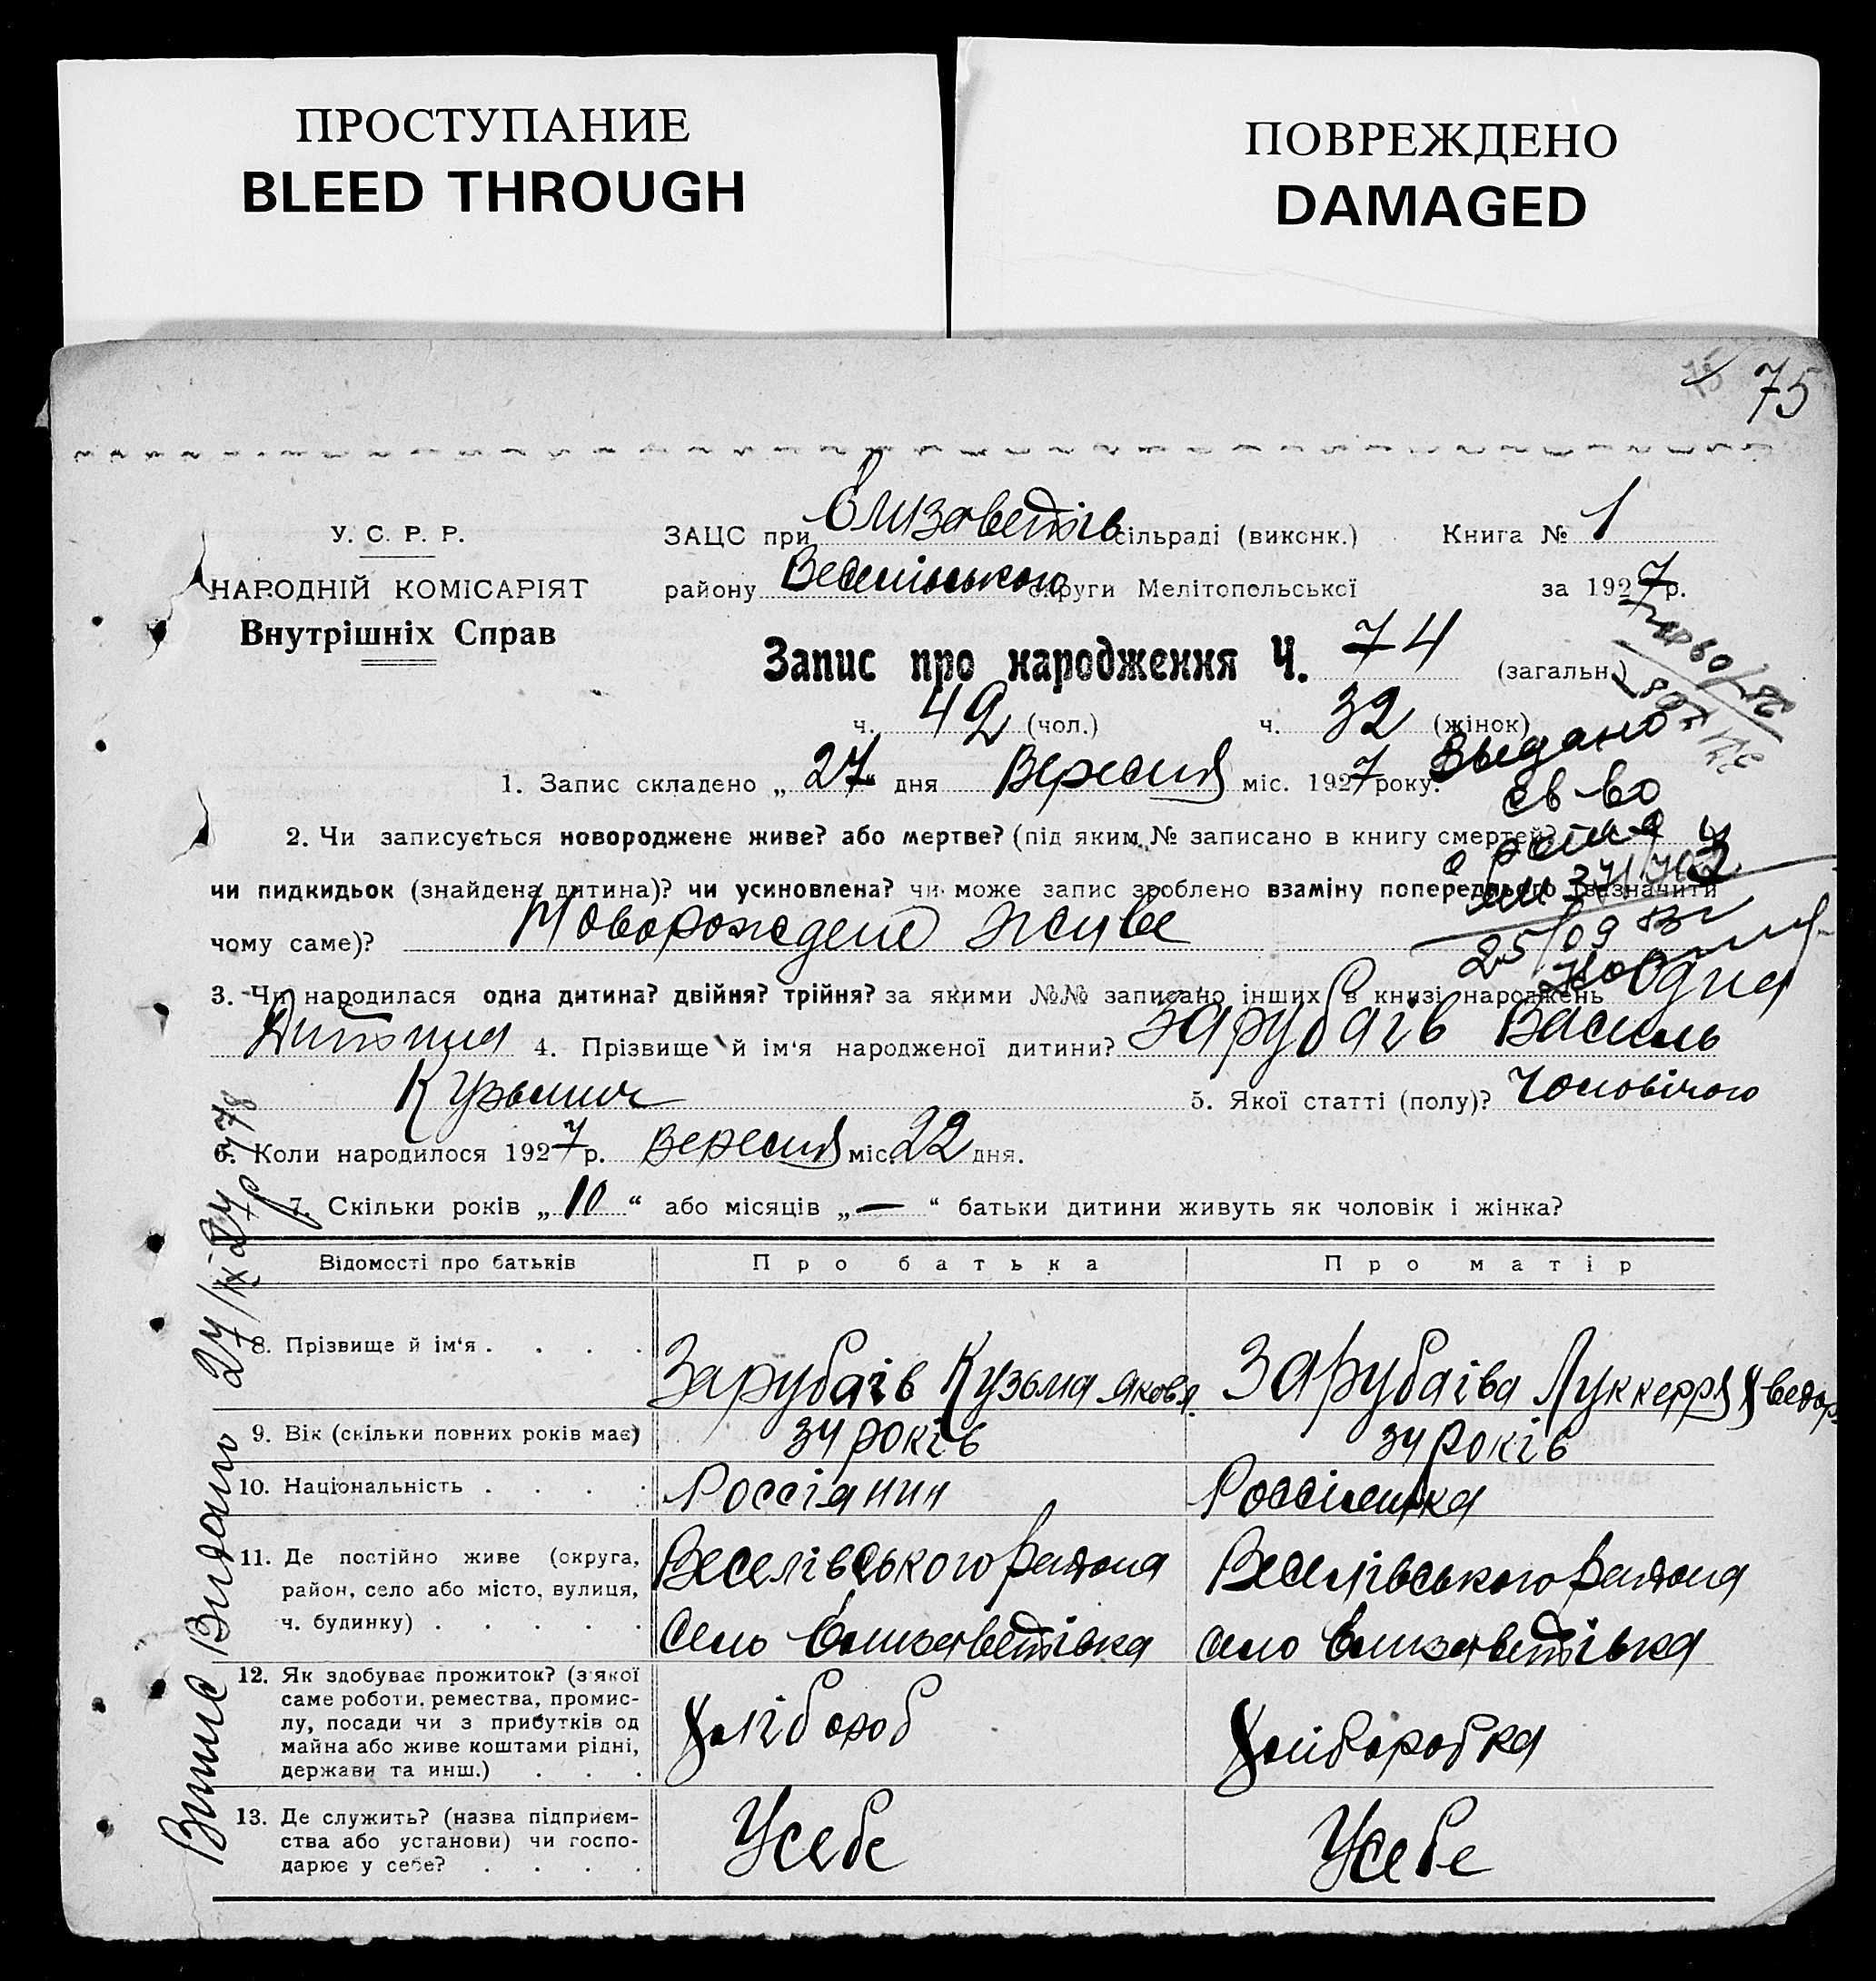 ПРОСТУПАНИЕ
BLEED THROUGH
ПОВРЕЖДЕНО
DAMAGED
75
У. С. Р. Р.
НАРОДНІЙ КОМІСАРІЯТ
Внутрішніх Справ
ЗАЦС при Єлизаветів сільраді (виконк.) Книга № 1
району Веселівського округи Мелітопольської за 1927 р.
Запис про народження Ч. 74 (загальн.)
ч. 42 (чол.) ч. 32 (жінок)
1. Запис складено „ 27 " дня Вересня міс. 1927 року.
Выдано
св-во
2. Чи записується новороджене живе? або мертве? (під яким № записано в книгу смертей?
чи пидкидьок (знайдена дитина)? чи усиновлена? чи може запис зроблено взаміну попереднього (зазначити
чому саме)? Новорождене живе
25/09
3. Чи народилася одна дитина? двійня? трійня? за якими №№ записано інших в книзі народжень Одна
Дитина 4. Прізвище й ім'я народженої дитини? Зарубаів Василь
Кузьмич 5. Якої статті (полу)? Чоловічого
6. Коли народилося 1927 р. Вересня міс. 22 дня.
7. Скільки років „ 10 “ або місяців „ — “ батьки дитини живуть як чоловік і жінка?
Відомості про батьків Про батька Про матір
8. Прізвище й ім'я . . . . Зарубаів Кузьма Яковл. Зарубаіва Луккерря Хведор
9. Вік (скільки повних років має) 34 років 34 років
10. Національність . . . . Россіянин Россіянка
11. Де постійно живе (округа, Веселівського района Веселівського района
район, село або місто, вулиця,
ч. будинку) . . . . . село Єлизаветівка село Єлизаветівка
12. Як здобуває прожиток? (з якої
саме роботи, ремества, промис-
лу, посади чи з прибутків од Хліб ороб Хліборобка
майна або живе коштами рідні,
держави та инш.) . . .
13. Де служить? (назва підприєм- Усебе Усебе
ства або установи) чи госпо-
дарює у себе? . . . .
Випис Видано 27/IX 27 р